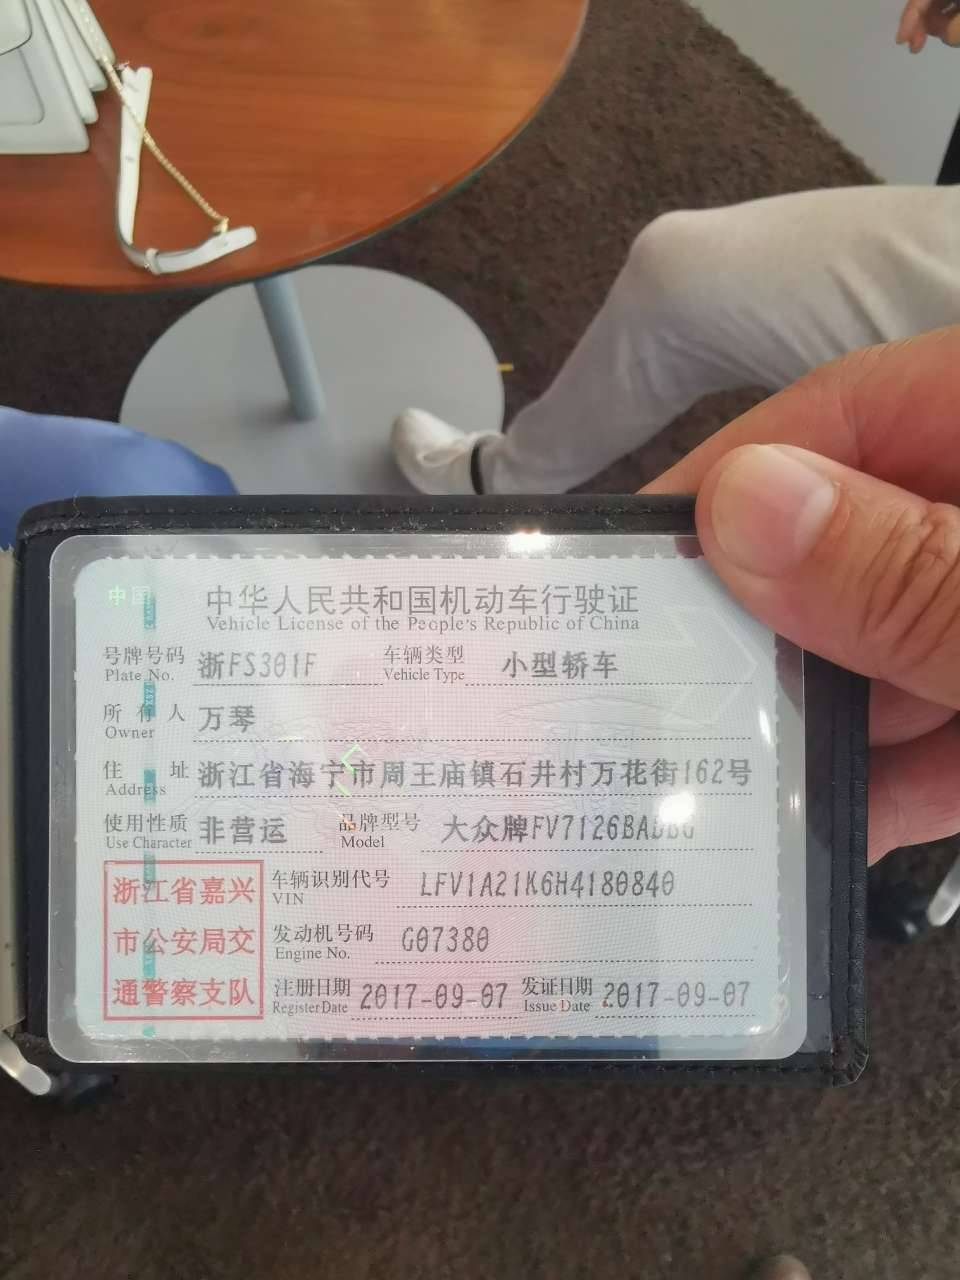 中国
中华人民共和国机动车行驶证
Vehicle License of the People's Republic of China
号牌号码 浙FS301F 车辆类型 小型轿车
Plate No. Vehicle Type
所有人 万琴
Owner
住址 浙江省海宁市周王庙镇石井村万花街162号
Address
使用性质 非营运 品牌型号 大众牌FV7126BADBG
Use Character Model
浙江省嘉兴
市公安局交
通警察支队
车辆识别代号 LFV1A21K6H4180840
VIN
发动机号码 G07380
Engine No.
注册日期 2017-09-07 发证日期 2017-09-07
Register Date Issue Date